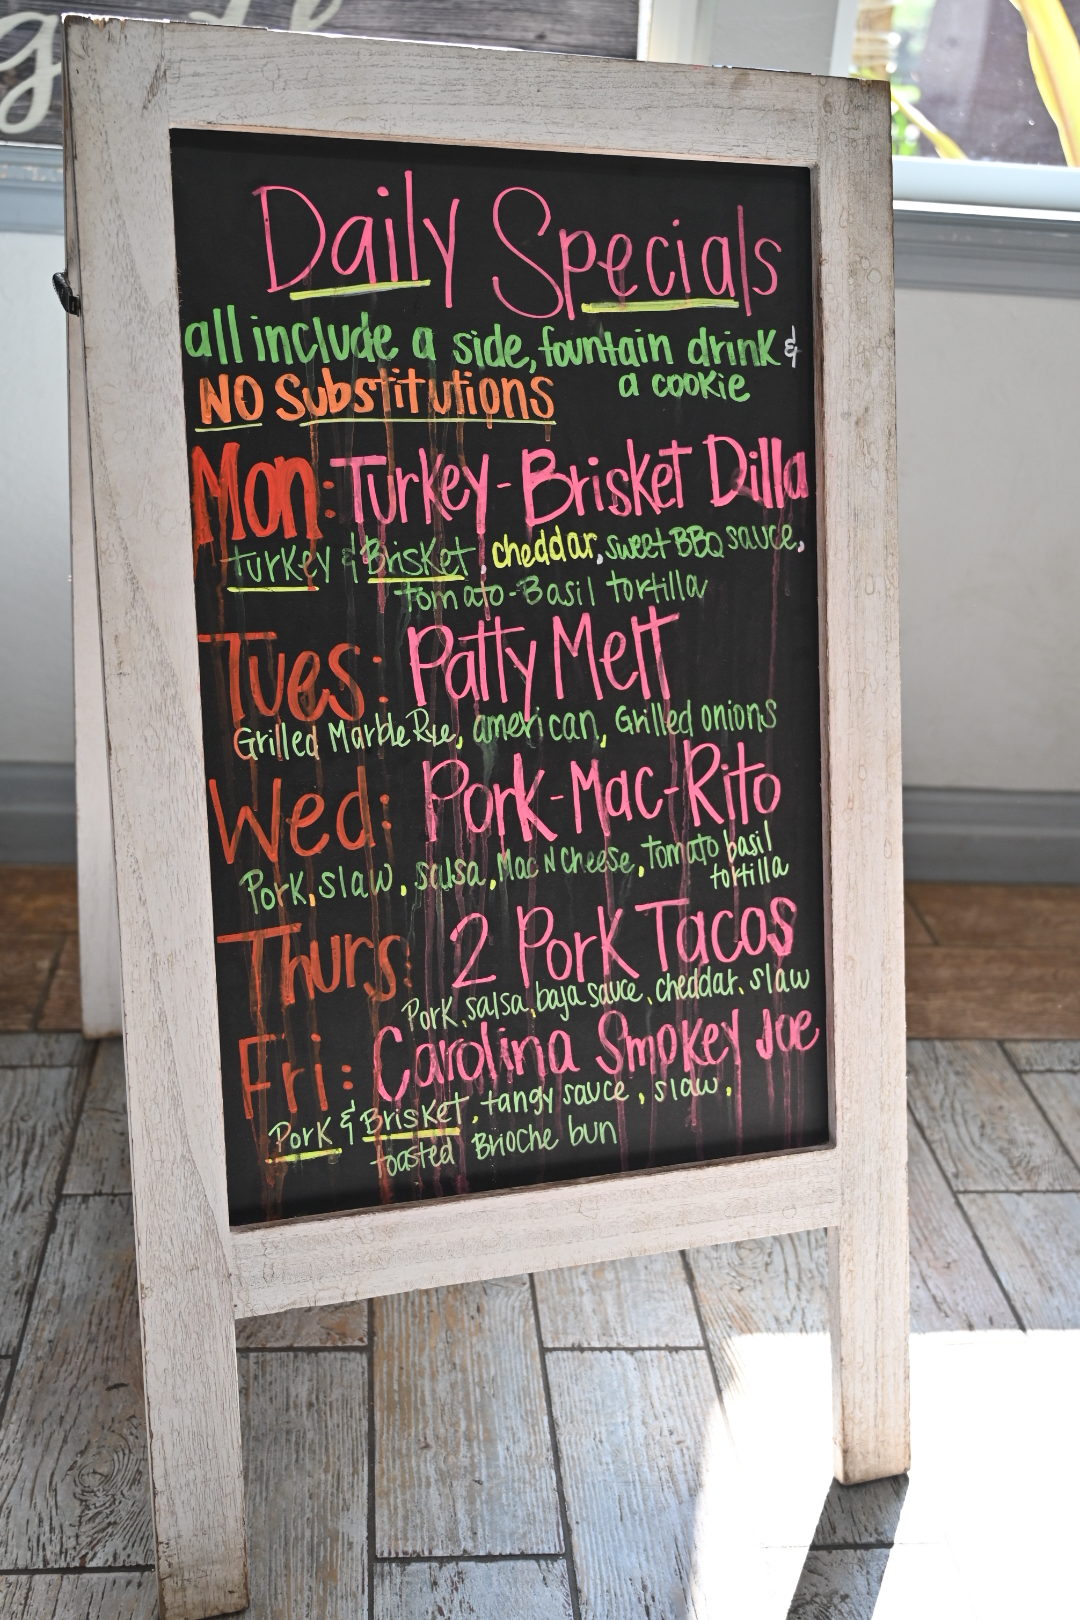 Daily Specials
all include a side, fountain drink &
a cookie
NO Substitutions
Mon: Turkey-Brisket Dilla
turkey & Brisket, cheddar, sweet BBQ sauce,
tomato-Basil tortilla
Tues: Patty Melt
Grilled Marble Rye, american, Grilled onions
Wed: Pork-Mac-Rito
Pork, slaw, salsa, Mac N Cheese, tomato basil
tortilla
Thurs: 2 Pork Tacos
Pork, salsa, baja sauce, cheddar, slaw
Fri: Carolina Smokey Joe
Pork & Brisket, tangy sauce, slaw,
toasted Brioche bun